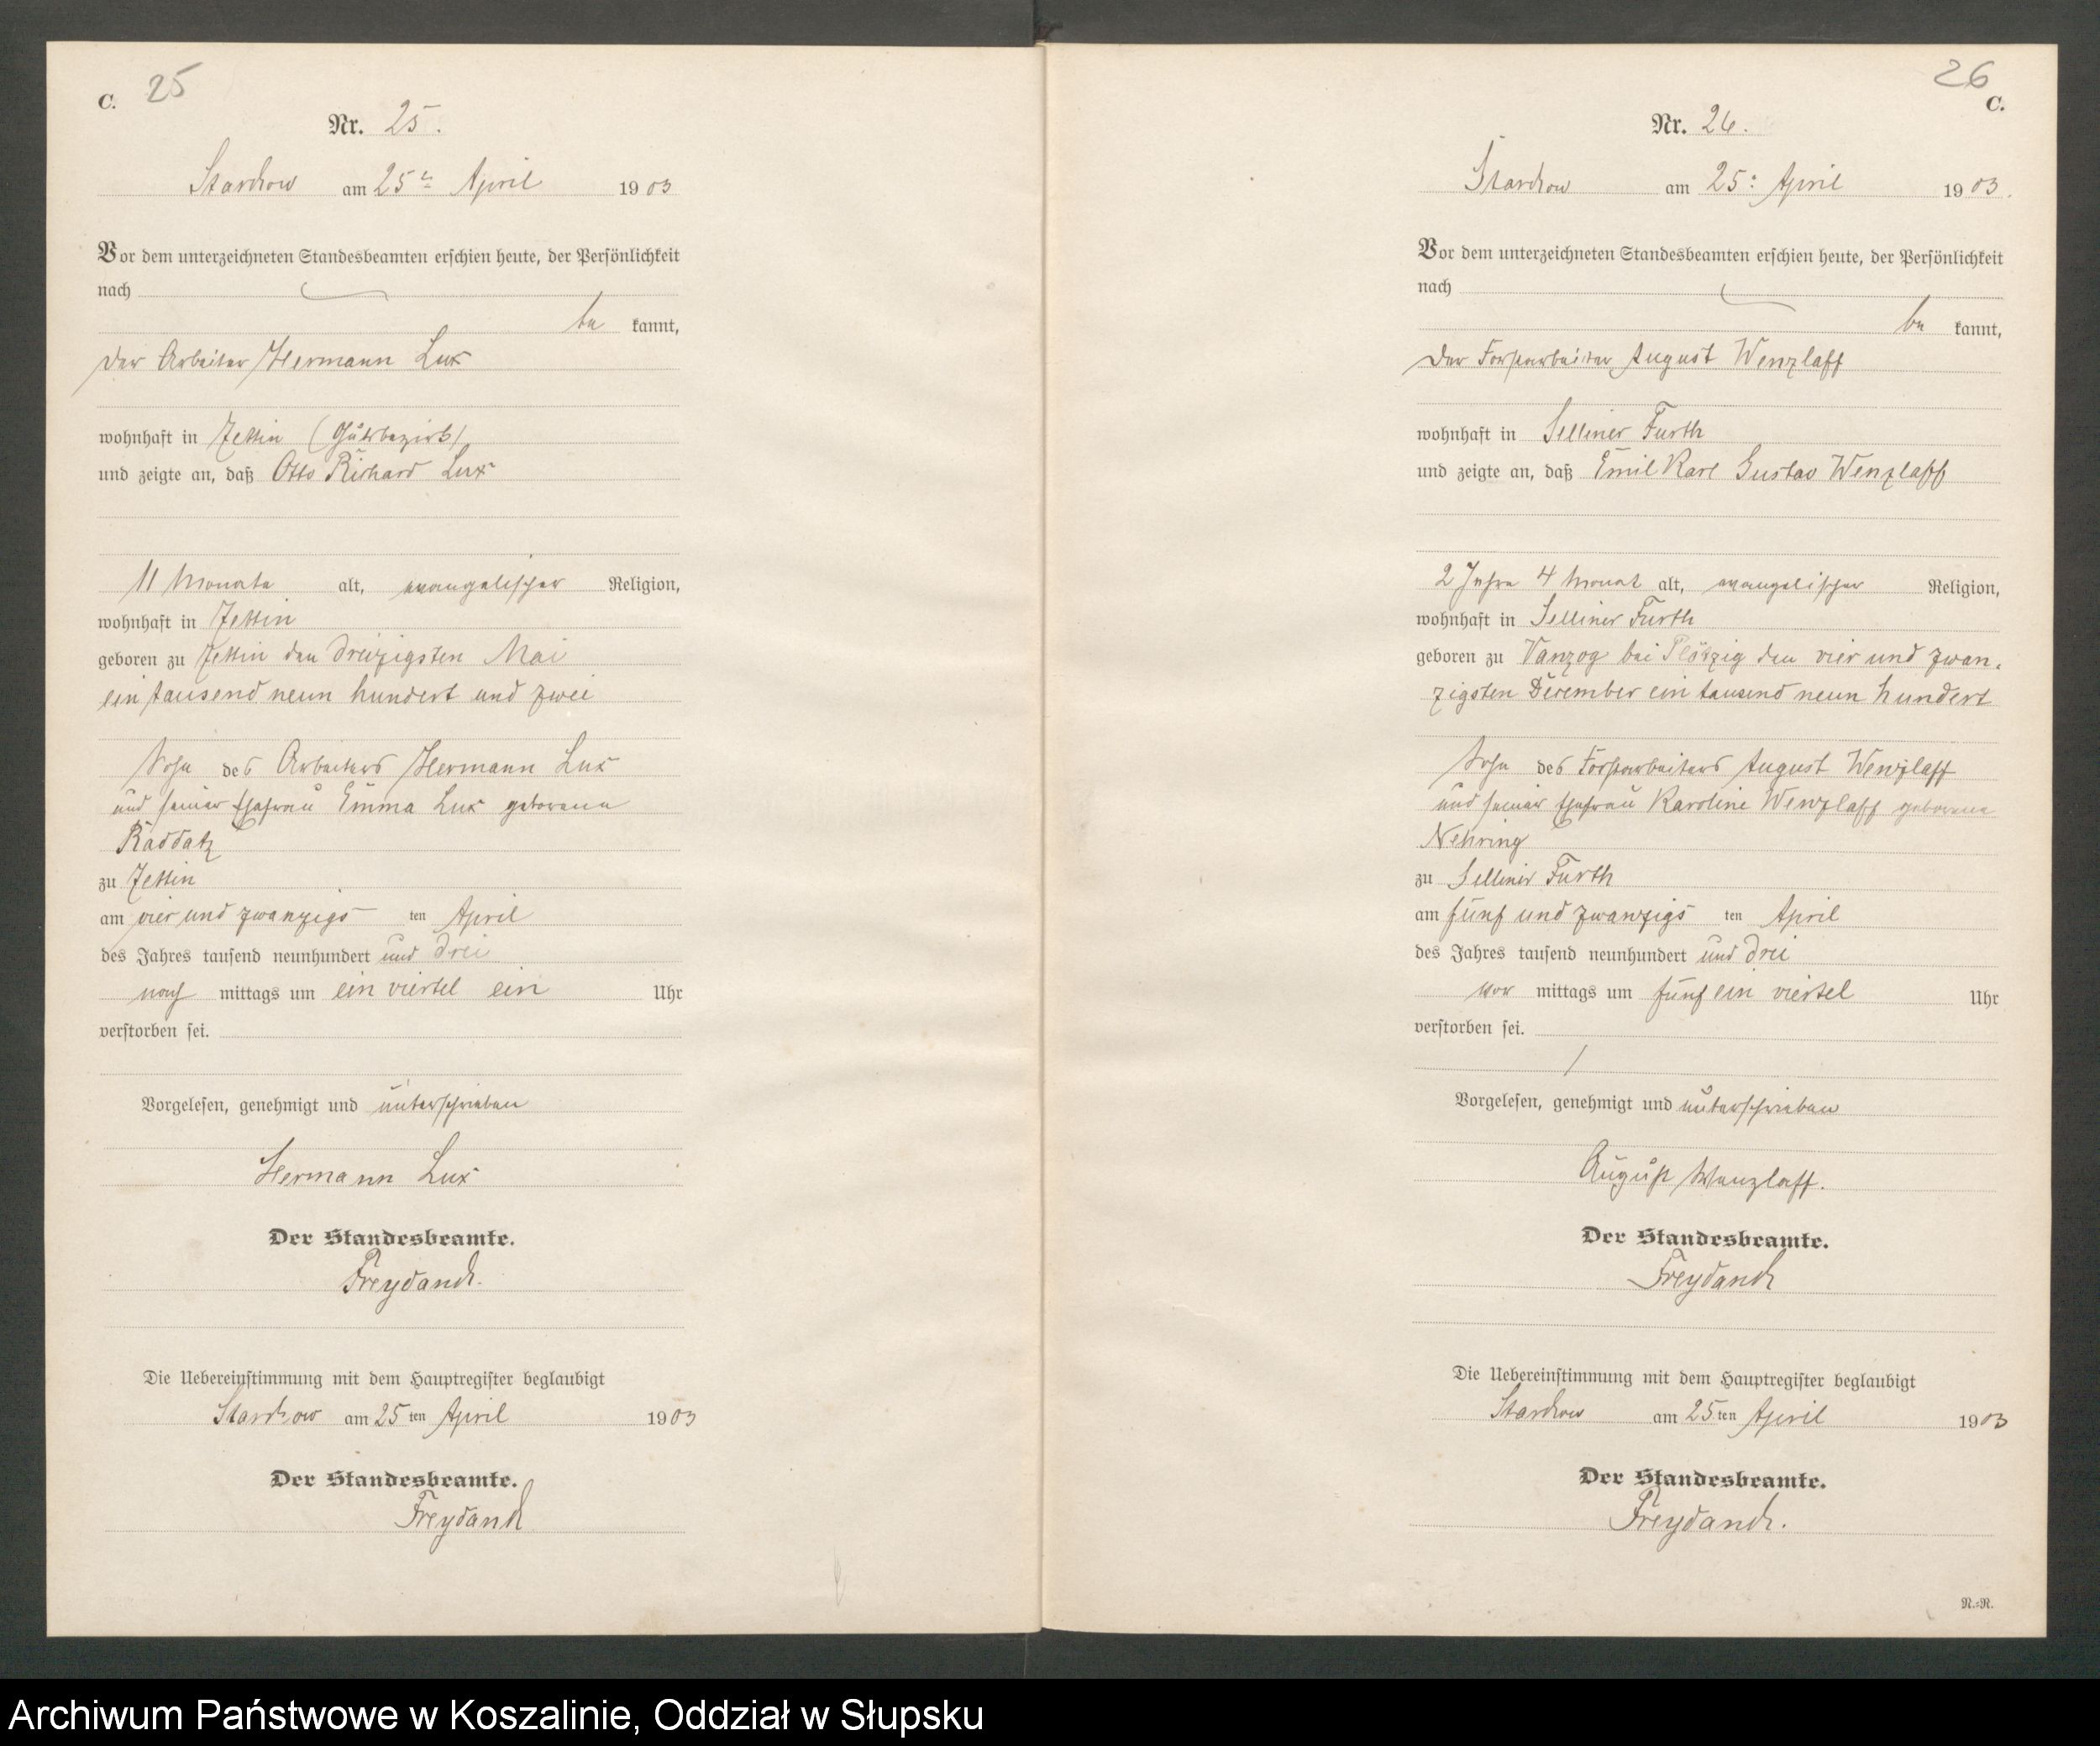 C. 25
Nr. 25.
Starckow am 25ten April 1903
Vor dem unterzeichneten Standesbeamten erschien heute, der Persönlichkeit
nach
be kannt,
der Arbeiter Hermann Lux
wohnhaft in Zettin (Gutsbezirk)
und zeigte an, daß Otto Richard Lux
11 Monate alt, evangelischer Religion,
wohnhaft in Zettin
geboren zu Zettin den dreizigsten Mai
ein tausend neun hundert und zwei
Sohn des Arbeiters Hermann Lux
und seiner Ehefrau Emma Lux geborene
Raddatz
zu Zettin
am vier und zwanzigs ten April
des Jahres tausend neunhundert und drei
nach mittags um ein viertel ein Uhr
verstorben sei.
Vorgelesen, genehmigt und unterschrieben
Hermann Lux
Der Standesbeamte.
Freydanck.
Die Uebereinstimmung mit dem Hauptregister beglaubigt
Starckow am 25 ten April 1903
Der Standesbeamte.
Freydanck
26
C.
Nr. 26.
Starckow am 25. April 1903.
Vor dem unterzeichneten Standesbeamten erschien heute, der Persönlichkeit
nach
be kannt,
der Forstarbeiter August Wenzlaff
wohnhaft in Selliner Furth
und zeigte an, daß Emil Karl Gustav Wenzlaff
2 Jahre 4 Monat alt, evangelischer Religion,
wohnhaft in Selliner Furth
geboren zu Vanzog bei Plötzig den vier und zwan-
zigsten December ein tausend neun hundert
Sohn des Forstarbeiters August Wenzlaff
und seiner Ehefrau Karoline Wenzlaff geborene
Nehring
zu Selliner Furth
am fünf und zwanzigs ten April
des Jahres tausend neunhundert und drei
vor mittags um fünf ein viertel Uhr
verstorben sei.
Vorgelesen, genehmigt und unterschrieben
August Wenzlaff.
Der Standesbeamte.
Freydanck
Die Uebereinstimmung mit dem Hauptregister beglaubigt
Starckow am 25 ten April 1903
Der Standesbeamte.
Freydanck.
N.=N.
Archiwum Państwowe w Koszalinie, Oddział w Słupsku